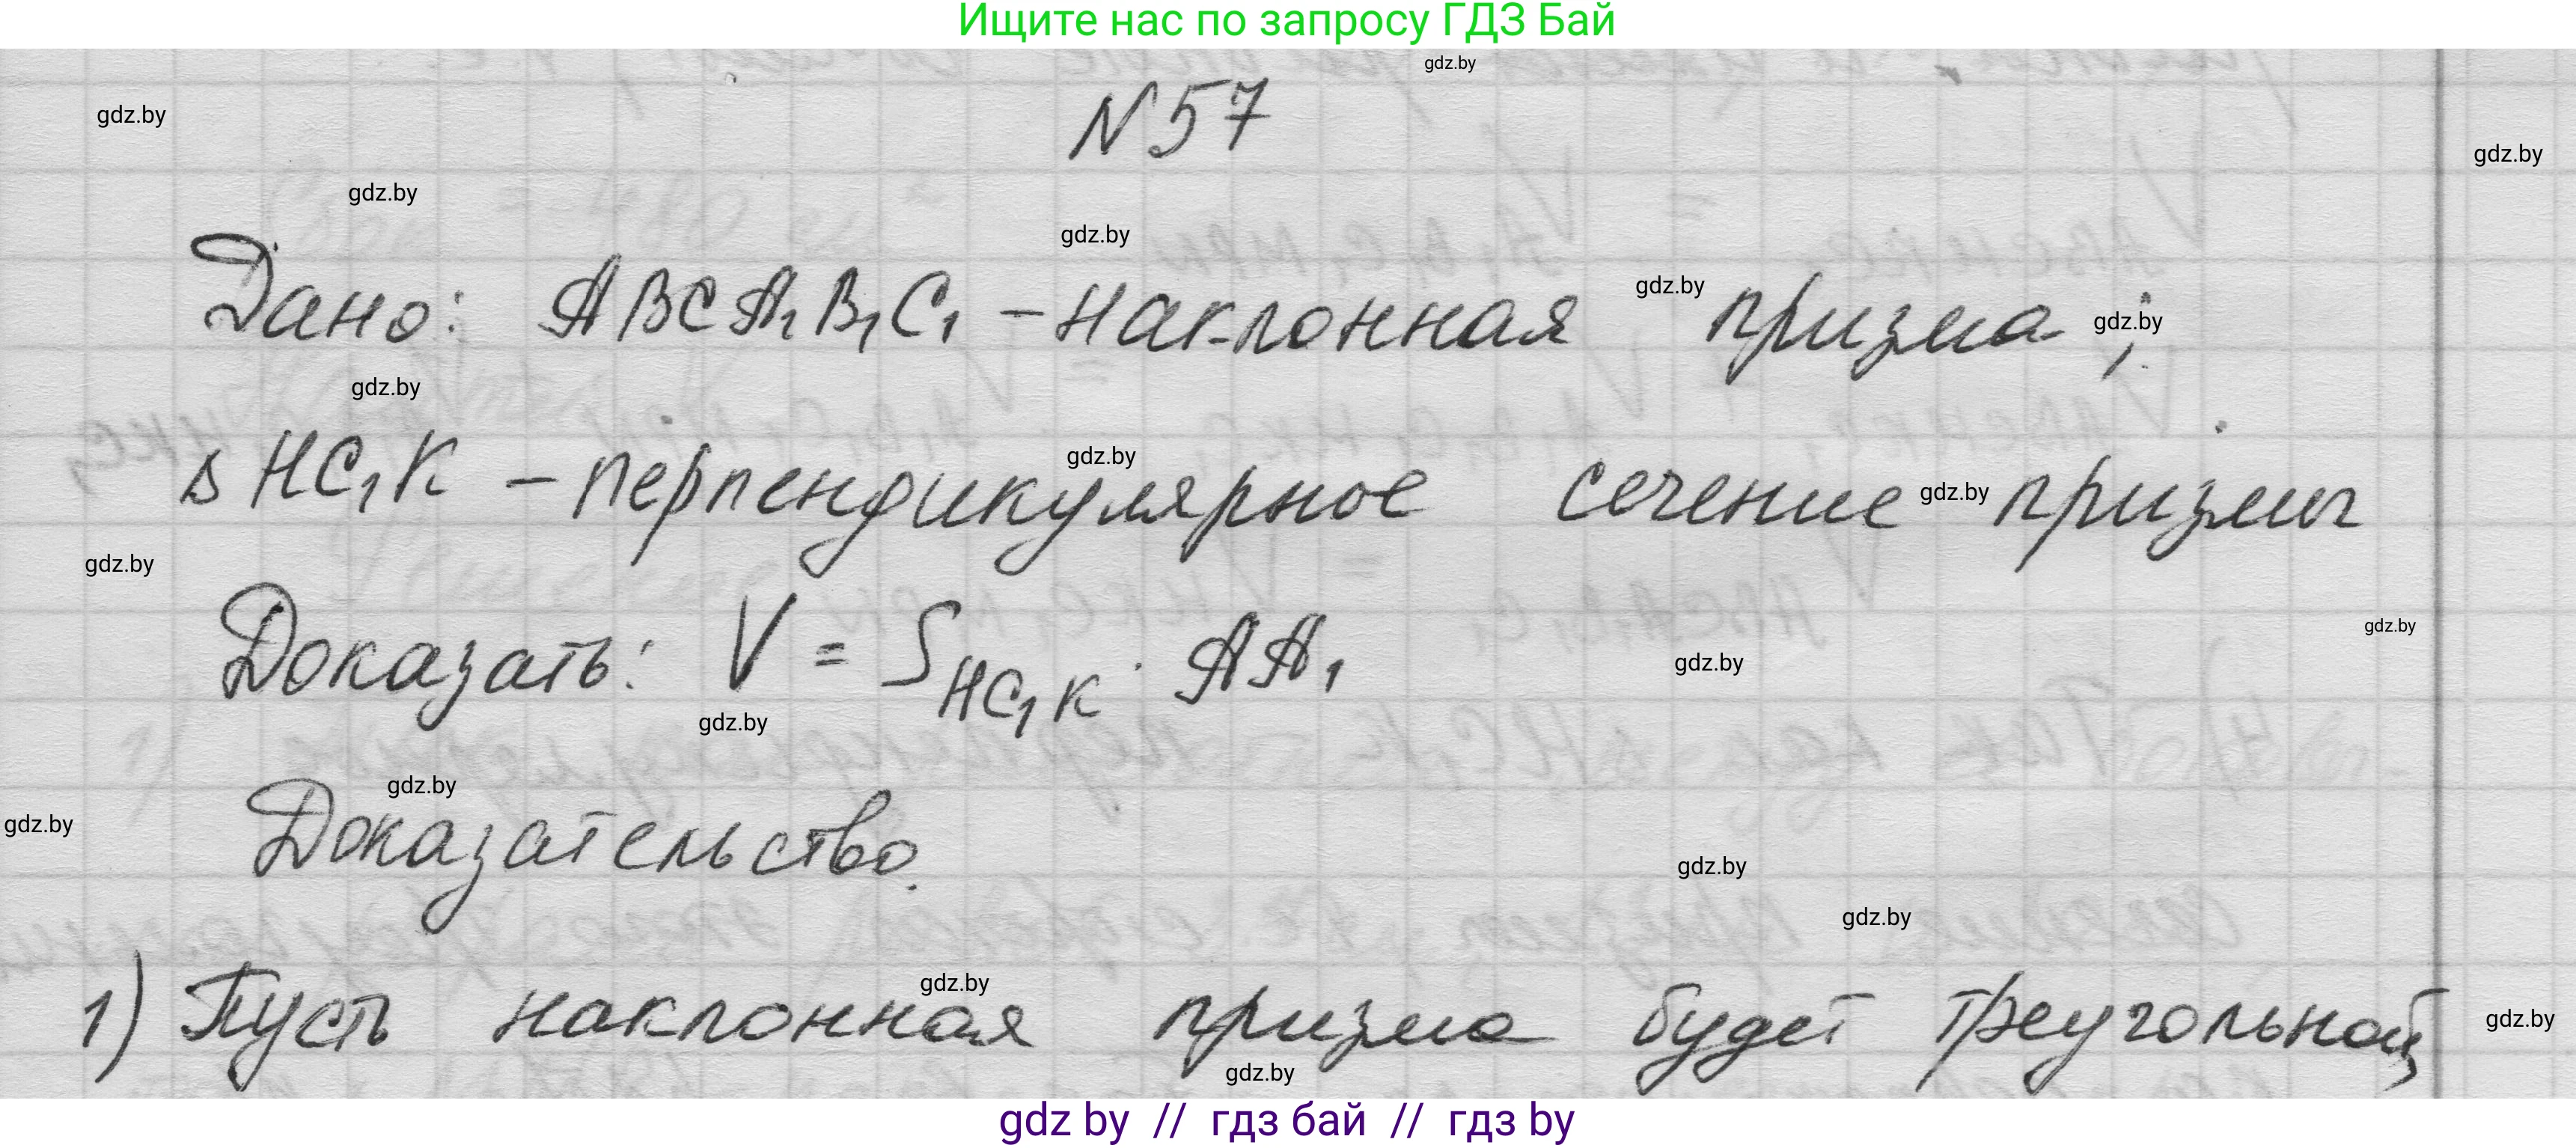 Ищите нас по запросу ГДЗ Бай
gdz.by
N57
gdz.by
gdz.by
gdz.by
gdz.by
Дано: ABCA₁B₁C₁ – наклонная призма;
gdz.by
gdz.by
gdz.by
gdz.by
Δ HC₁K – перпендикулярное сечение призмы
gdz.by
gdz.by
Доказать: V = S_{HC₁K} · AA₁
gdz.by
gdz.by
gdz.by
gdz.by
gdz.by
Доказательство.
gdz.by
gdz.by
gdz.by
1) Пусть наклонная призма будет треугольной
gdz.by
gdz.by
gdz by // гдз бай // гдз by